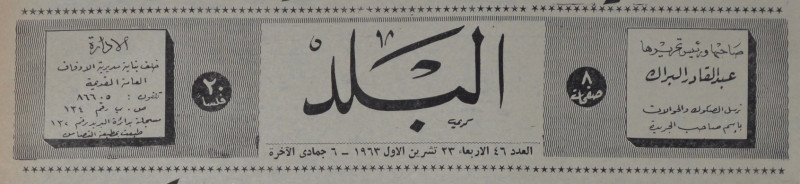 صاحبها ورئيس تحريرها
عبدالقادر البراك
ترسل الصكوك والحوالات
باسم صاحب الجريدة
٨
صفحات
البلد
كريم
العدد ٤٦ الاربعاء ٢٣ تشرين الاول ١٩٦٣ – ٦ جمادى الآخرة
٢٠
فلسا
الادارة
خلف بناية مديرية الاوقاف
العامة القديمة
تلفون : ٨٦٦٠٥
ص . ب رقم ١٢٤
مسجلة بدائرة البريد رقم ١٢٠
طبعت بمطبعة التضامن